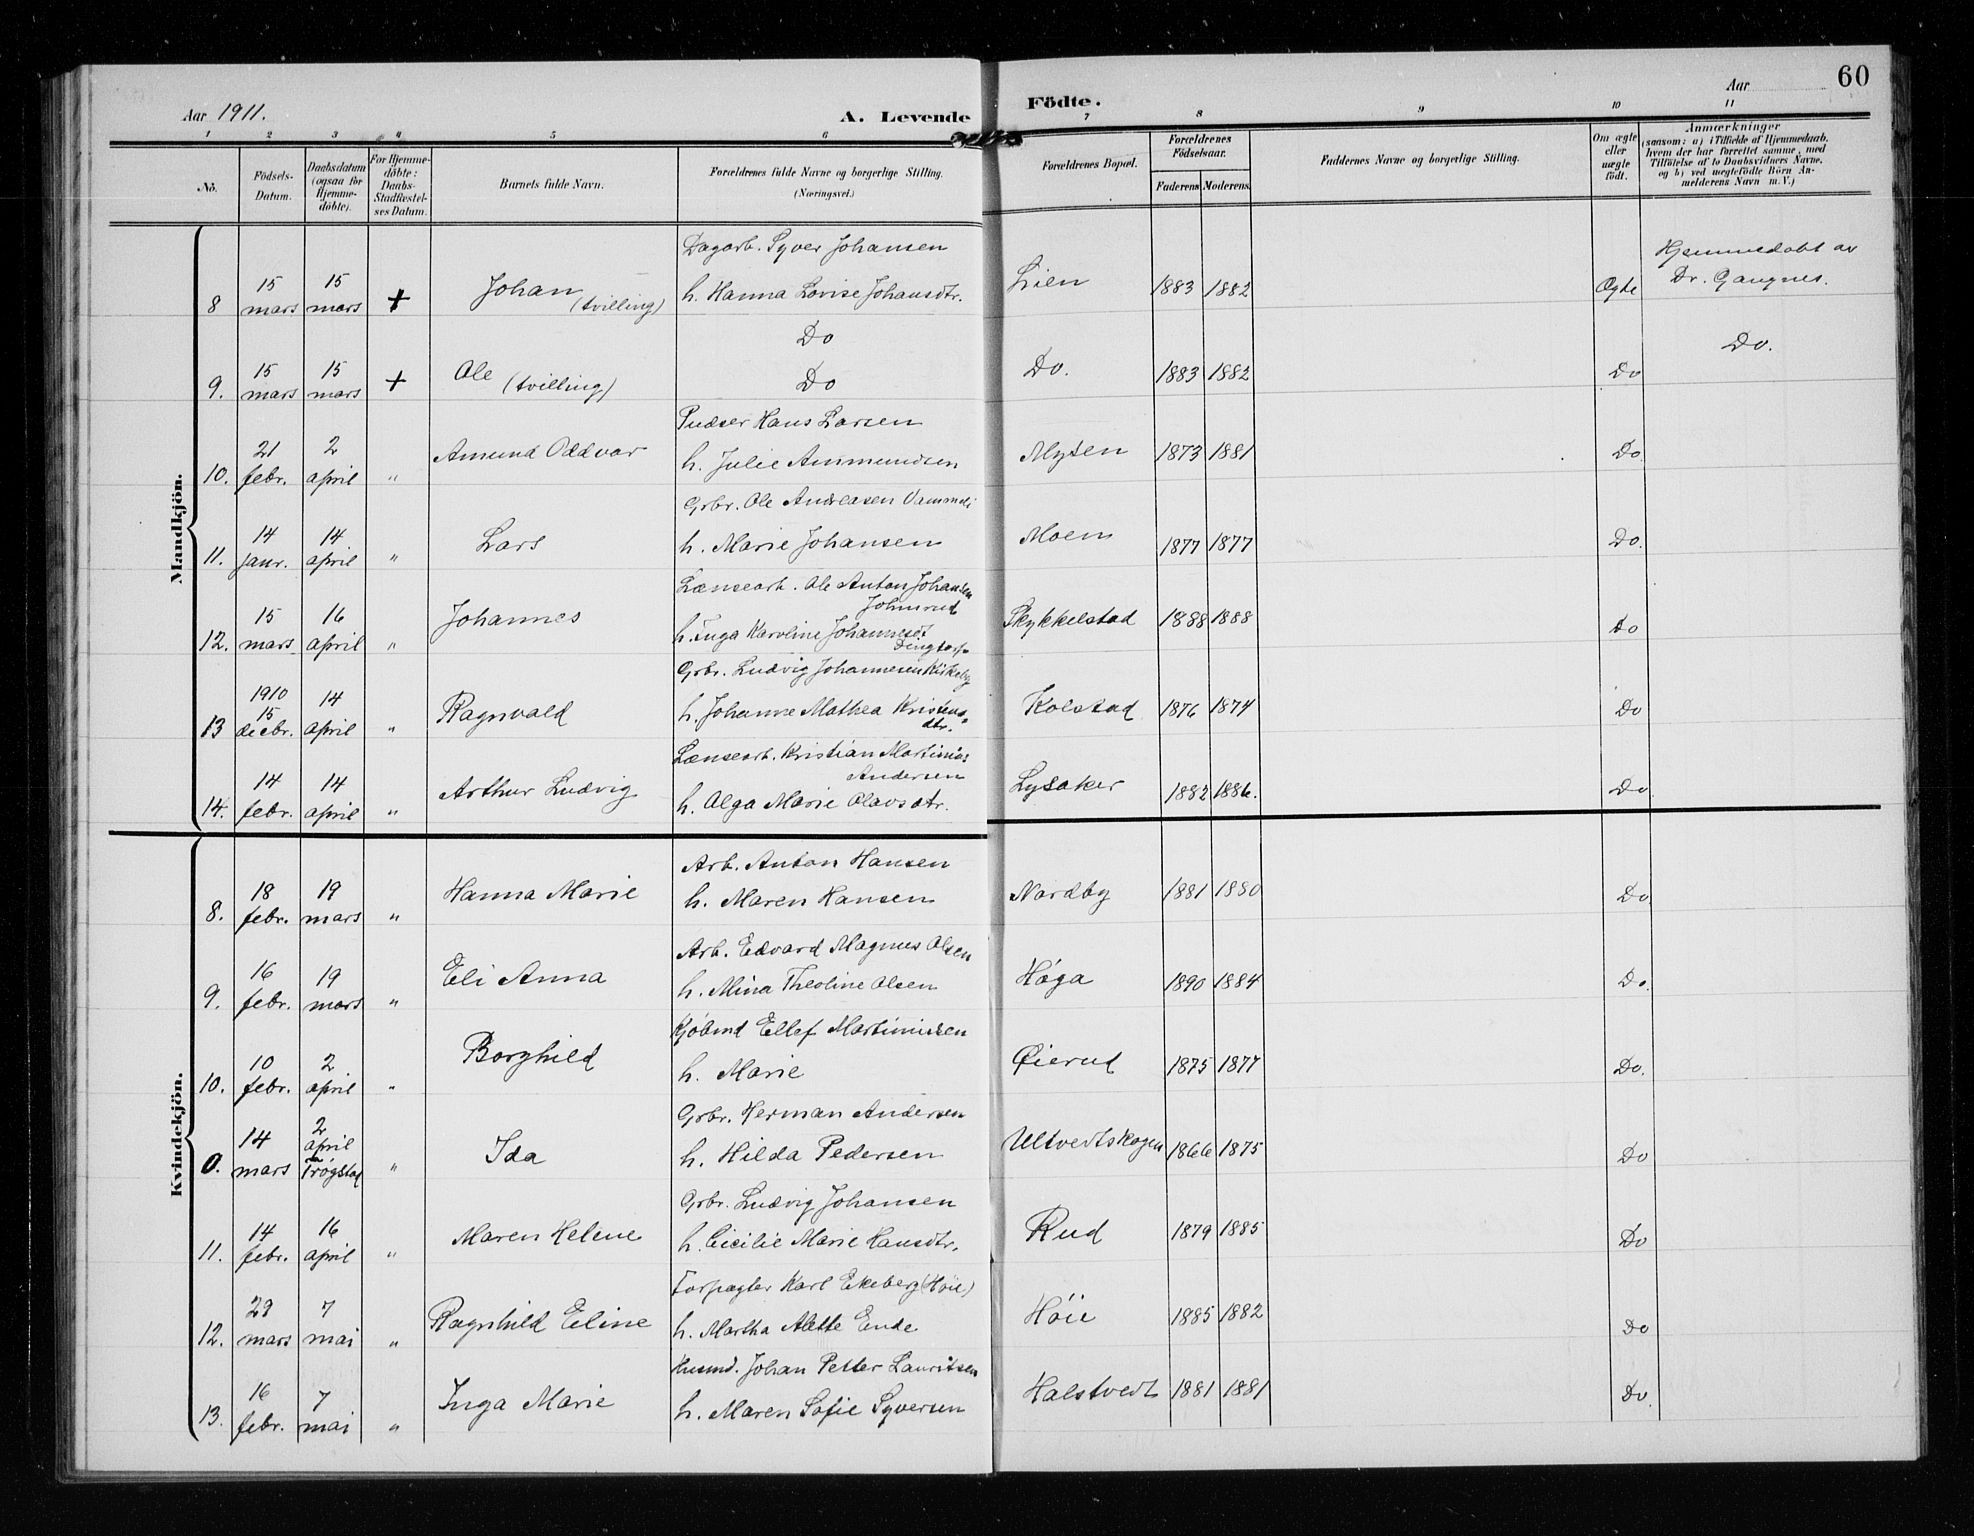 60
Aar 1911.
A. Levende
Födte.
Aar
1 2 3 4 5 6 7 8 9 10 11
No.
Födsels-Datum.
Daabsdatum (ogsaa for Hjemme-döbte).
For Hjemme-döbte: Daabs-Stadfæstel-ses Datum.
Barnets fulde Navn.
Forældrenes fulde Navne og borgerlige Stilling. (Næringsvei.)
Forældrenes Bopæl.
Forældrenes Födselsaar.
Faderens. Moderens.
Faddernes Navne og borgerlige Stilling.
Om ægte eller uægte født.
Anmærkninger
(saasom: a) i Tilfælde af Hjemmedaab, hvem der har forrettet samme, med Tilföielse af to Daabsvidners Navne, og b) ved uægtefödte Börn An-melderens Navn m. V.)
Mandkjön.
8 15 mars 15 mars + Johan (tvilling) Dagarb. Syver Johansen h. Hanna Lovise Johansdtr. Lien 1883 1882 Ogte Hjemmedøbt av Dr. Gangnes.
9. 15 mars 15 mars + Ole (tvilling) Do Do Do. 1883 1882 Do Do.
10. 21 febr. 2 april " Amund Oddvar Pudser Hans Larsen h. Julie Ammundsen Mysen 1873 1881 Do
11. 14 janr. 14 april " Lars Grbr. Ole Andreasen h. Marie Johansen Moen 1877 1877 Do.
12. 15 mars 16 april " Johannes Lænsearb. Ole Anton Johansen h. Inga Karoline Skykkelstad 1888 1888 Do
13 1910 15 decbr. 14 april " Ragnvald Grbr. Ludvig Johannesen Kirkeby h. Johanne Mathea Kristens-dtr. Kolstad 1876 1874 Do
14. 14 febr. 14 april " Arthur Ludvig Lænsearb. Kristian Martinius Andersen h. Olga Marie Olavsdtr. Lysaker 1882 1886. Do
Kvindekjön.
8. 18 febr. 19 mars " Hanna Marie Arb. Anton Hansen h. Maren Hansen Nordby 1881 1880 Do
9. 16 febr. 19 mars " Eli Anna Arb. Edvard Magnus Olsen h. Mina Theoline Olsen Høga 1890 1884 Do.
10. 10 febr. 2 april " Borghild Kjøbmd Ellef Martiniussen h. Marie Øierud 1875 1877 Do.
0. 14 mars 2 april i Trøgstad " Ida Grbr. Herman Andersen h. Hilda Pedersen Ultvedtskogen 1866 1875 Do
11. 14 febr. 16 april " Maren Helene Grbr. Ludvig Johansen h. Cicilie Marie Hansdtr. Rud 1879 1885 Do
12. 29 mars 7 mai " Ragnhild Eline Forpagter Karl Ekeberg (Høie) h. Martha Alette Ende Høie 1885 1882 Do
13. 16 febr. 7 mai " Inga Marie Husmd. Johan Petter Lauritsen h. Maren Sofie Syversen Halstvedt 1881 1881 Do.